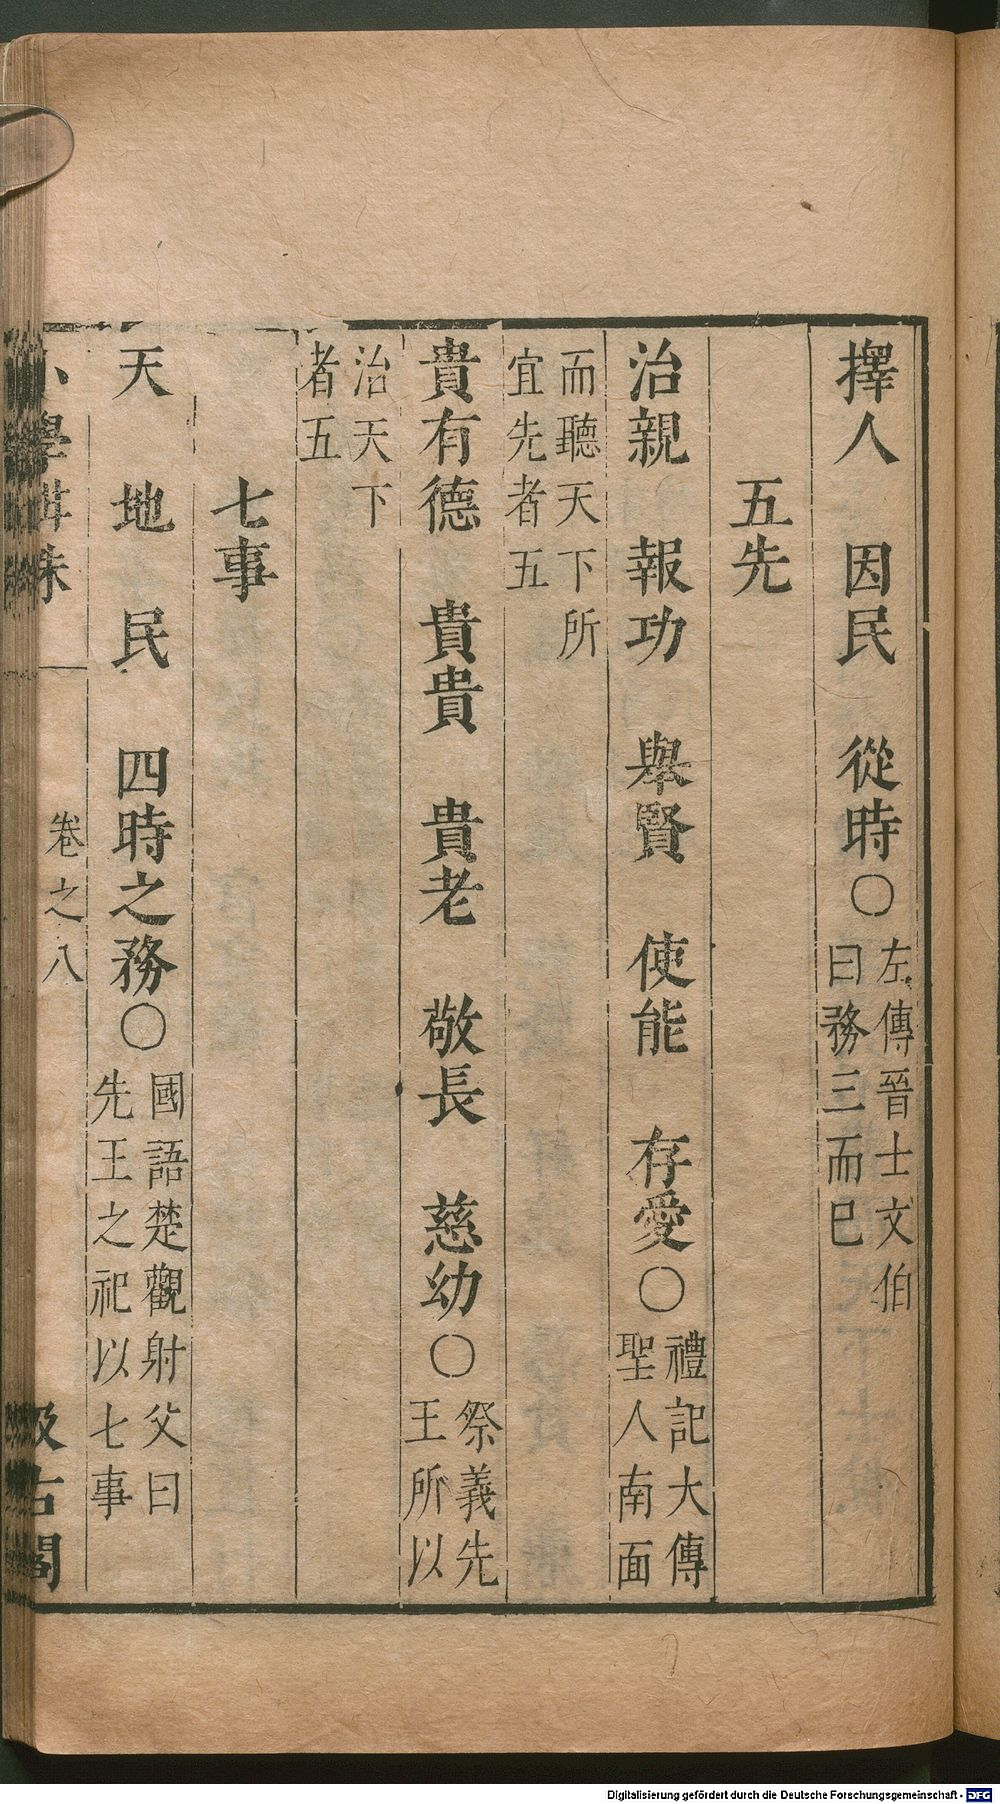 擇人　因民　從時○左傳晉士文伯曰務三而已
五先
治親　報功　舉賢　使能　存愛○禮記大傳聖人南面
而聽天下所宜先者五
貴有德　貴貴　貴老　敬長　慈幼○祭義先王所以
治天下者五
七事
天　地　民　四時之務○國語楚觀射父曰先王之祀以七事
小學紺珠　卷之八　汲古閣
Digitalisierung gefördert durch die Deutsche Forschungsgemeinschaft - DFG